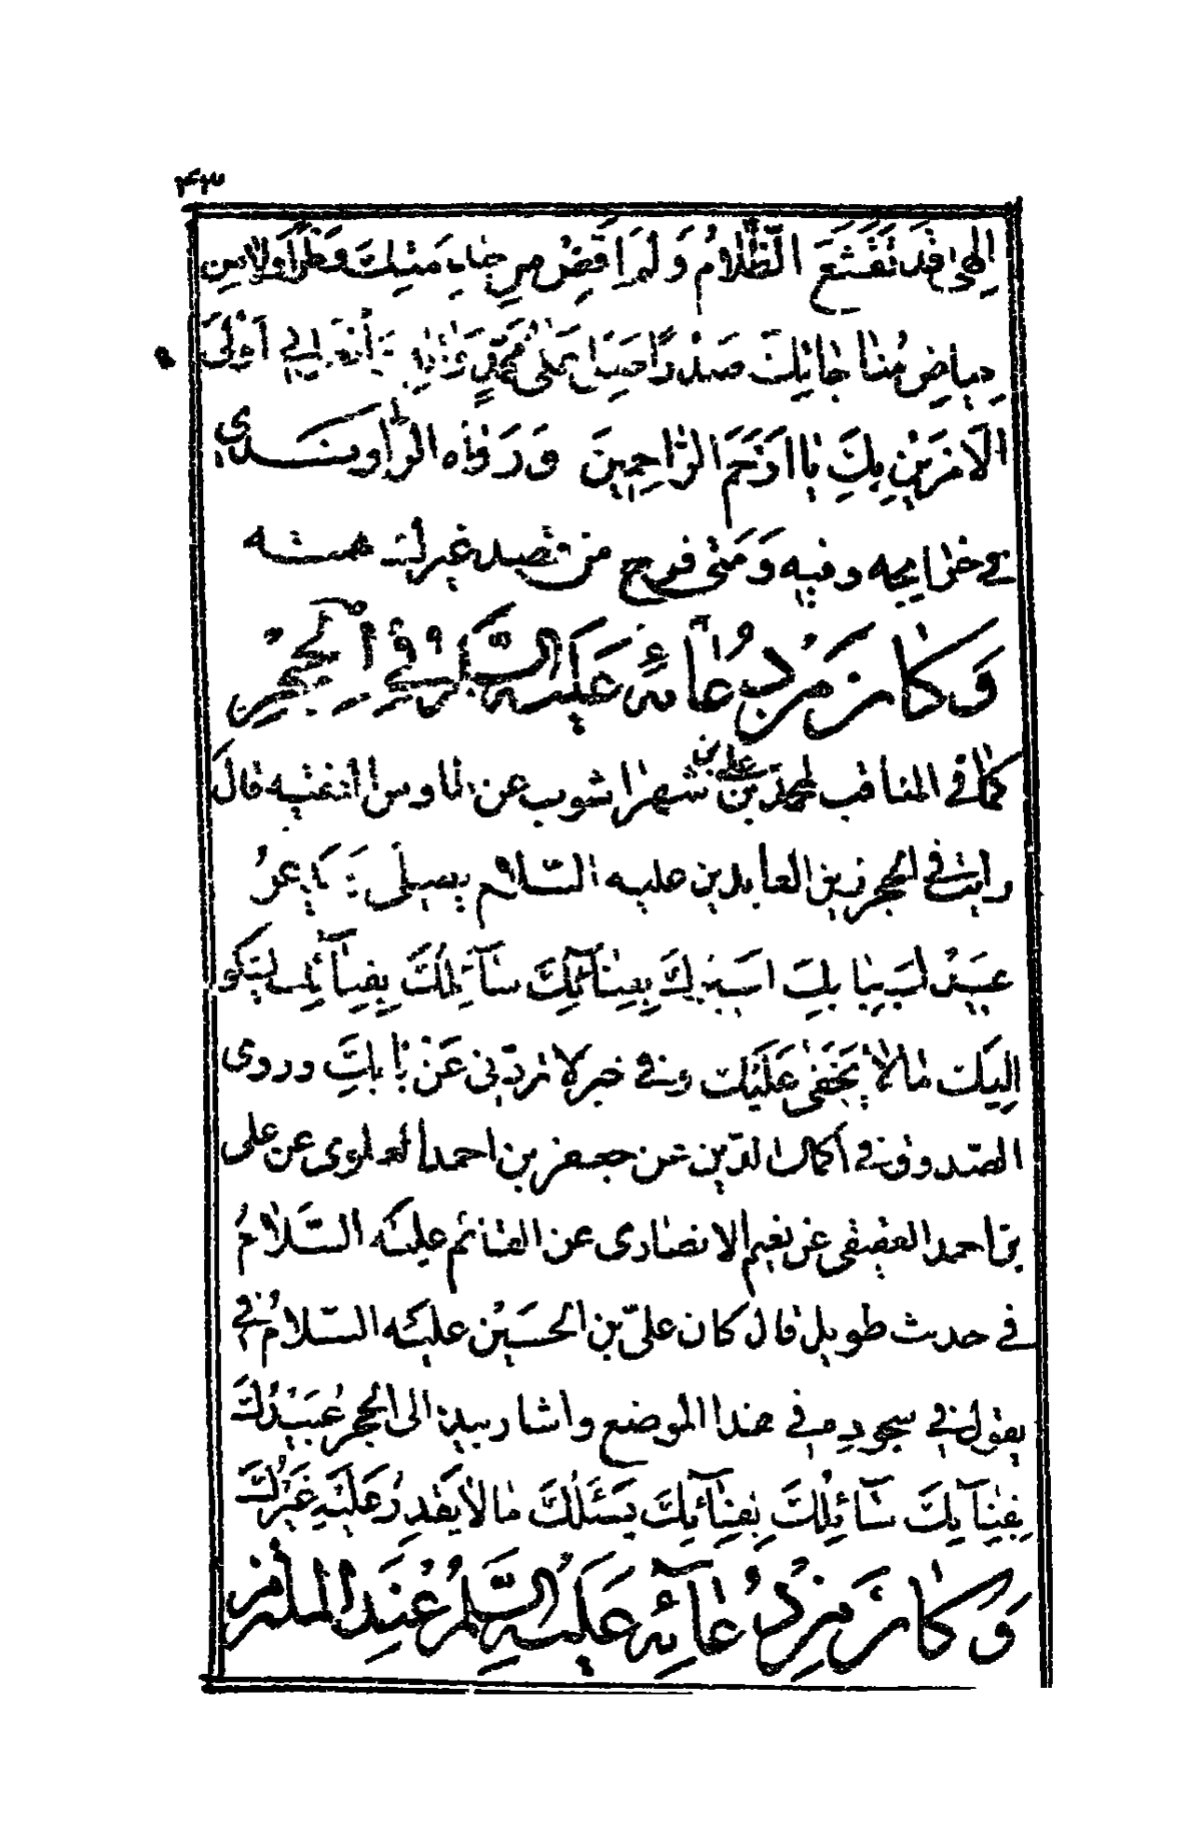 ۴۳
اِلٰهِی قَدْ تَقَشَّعَ الظَّلَامُ وَلَمْ اَقْضِ مِنْ خِدْمَتِكَ وَطَراً وَلَا مِنْ
حِیَاضِ مُنَاجَاتِكَ صَدْراً صَلِّ عَلٰی مُحَمَّدٍ وَاٰلِهِ وَافْعَلْ بِی اَوْلَی
الْاَمْرَیْنِ بِكَ یَا اَرْحَمَ الرَّاحِمِینَ وَرَوَاهُ الرَّاوَنْدِی
فی خرایجه وفیه وَمَتٰی فرج من قصد غیرك همته
وَكَانَ مِنْ دُعَائِهِ عَلَیْهِ السَّلَامُ فِی الْحِجْرِ
كما فی المناقب لمحمد بن علی بن شهراشوب عن طاوس الفقیه قالَ
رایت فی الحجر زین العابدین علیه السّلام یصلّی وَیَدْعُو
عُبَیْدُكَ بِبَابِكَ اَسِیرُكَ بِفِنَائِكَ سَآئِلُكَ بِفِنَآئِكَ یَشْكُو
اِلَیْكَ مَا لَا یَخْفٰی عَلَیْكَ وفی خبر لا تردّنی عَنْ بَابِكَ وروی
الصّدوق فی اكمال الدّین عن جعفر بن احمد العلوی عن علی
بن احمد العقیقی عن نعیم الانصاری عن القائم علیه السَّلَامُ
فی حدیث طویل قال كان علیّ بن الحسین علیه السّلامُ
یقول فی سجوده فی هذا الموضع واشار بیده الی الحجر عُبَیْدُكَ
بِفِنَآئِكَ سَآئِلُكَ بِفِنَآئِكَ یَسْئَلُكَ مَا لَا یَقْدِرُ عَلَیْهِ غَیْرُكَ
وَكَانَ مِنْ دُعَآئِهِ عَلَیْهِ السَّلَامُ عِنْدَ الْمُلْتَزَمِ